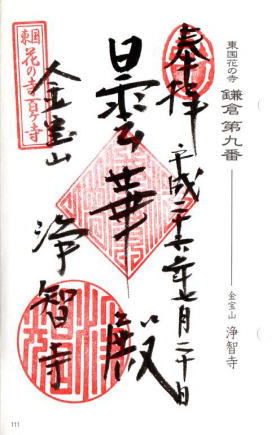 東国花の寺 鎌倉 第九番 ― 金宝山 浄智寺
奉拝 平成二十六年七月二十日
曇華殿
金宝山 浄智寺
東国
花の寺百ヶ寺
111